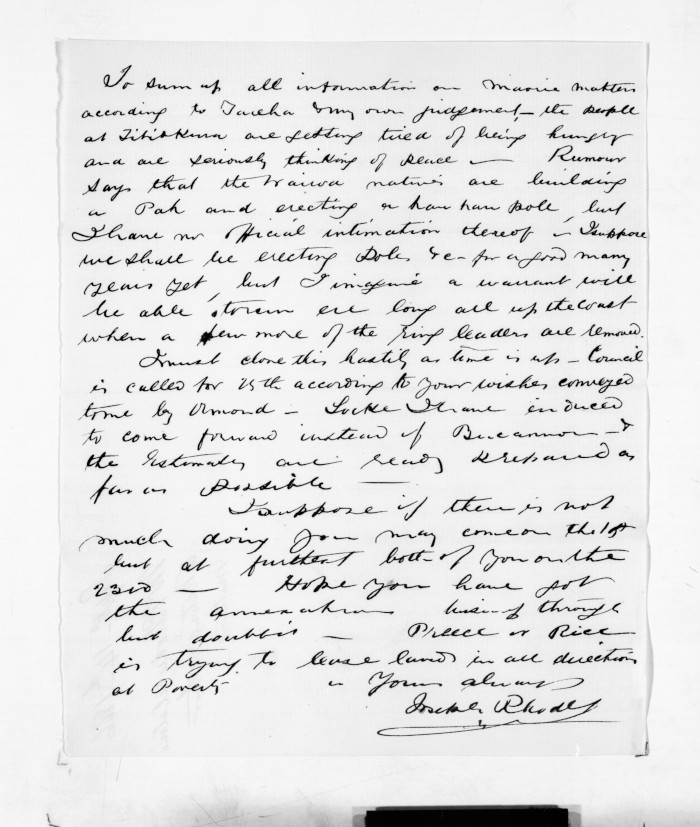 To sum up all information on Maorie matters
according to Tareha & my own judgement – the people
at Titiokura are getting tired of being hungry
and are seriously thinking of peace – Rumour
says that the Wairoa natives are building
a Pah and erecting a hau hau pole, but
I have no official intimation thereof – I suppose
we shall be erecting Poles &c – for a good many
years yet, but I imagine a warrant will
be able to run ere long all up the Coast
when a few more of the ring leaders are removed.
I must close this hastily as time is up – Council
is called for 25th according to your wishes conveyed
to me by Ormond – Locke I have induced
to come forward instead of Bucannon – &
the Estimates are ready prepared as
far as possible —
I suppose if there is not
much doing you may come on the 18
but at furthest both of you on the
23rd — Hope you have got
the annexation through
but doubt it — Preece or Rice
is trying to lease lands in all directions
at Poverty Yours always
Joseph Rhodes